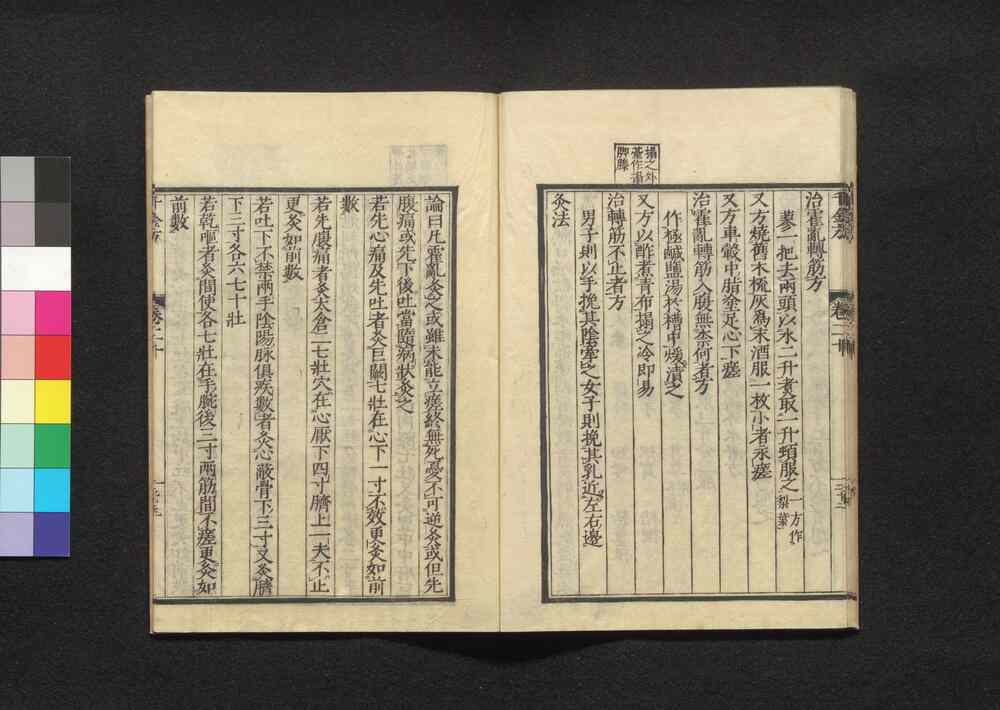 治霍亂轉筋方
蓼一把去兩頭以水二升煑取一升頓服之一方作
梨葉
又方燒舊木梳灰爲末酒服一枚小者永瘥
又方車轂中脂塗足心下瘥
治霍亂轉筋入腹無柰何者方
作極鹹鹽湯於槽中煖漬之
又方以酢煮青布搨之冷即易
搨之外
臺作
脚膝
治轉筋不止者方
男子則以手挽其陰牽之女子則挽其乳近左右邊
灸法
千金方
卷二十
論曰凡霍亂灸之或雖未能立瘥終無死憂不可逆灸或但先
腹痛或先下後吐當隨病狀灸之
若先心痛及先吐者灸巨闕七壯在心下一寸不效更灸如前
數
若先腹痛者灸太倉二七壯穴在心厭下四寸臍上一夫不止
更灸如前數
若吐下不禁兩手陰陽脉俱疾數者灸心蔽骨下三寸又灸臍
下三寸各六七十壯
若乾嘔者灸間使各七壯在手腕後三寸兩筋間不瘥更灸如
前數